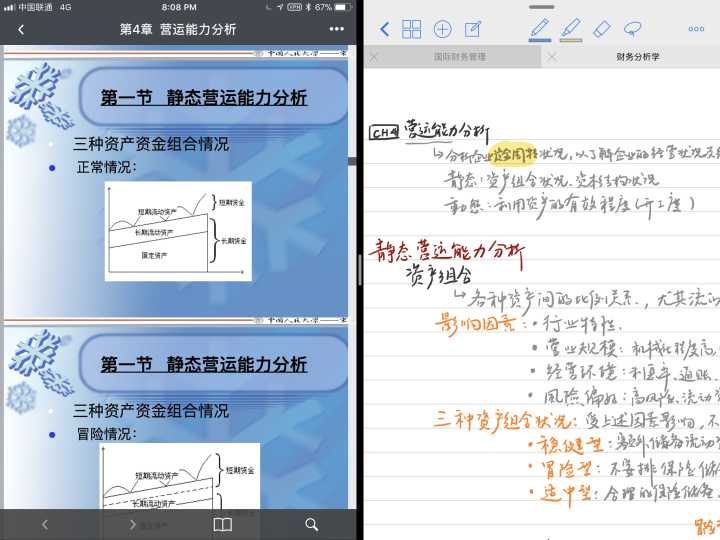 中国联通 4G 8:08 PM 67%
第4章 营运能力分析
第一节 静态营运能力分析
三种资产资金组合情况
正常情况：
短期资金
短期流动资产
长期流动资产
长期资金
固定资产
第一节 静态营运能力分析
三种资产资金组合情况
冒险情况：
短期流动资产
短期资金
长期流动资产
国际财务管理
财务分析学
CH4 营运能力分析
分析企业资金周转状况，以了解企业的经营状况及经
静态：资产组合状况、资本结构状况
動態：利用资产的有效程度（开工度）
静态营运能力分析
资产组合
各种资产间的比例关系，尤其流动
影响因素：• 行业特性、
• 营业规模：机械化程度高，
• 经营环境：利率、通账、
• 风险偏好：高风险、流动资
三种资产组合状况：受上述因素影响，不
• 稳健型：额外储备流动资
• 冒险型：不安排保险储备
• 适中型：合理的保险储备、
冒险